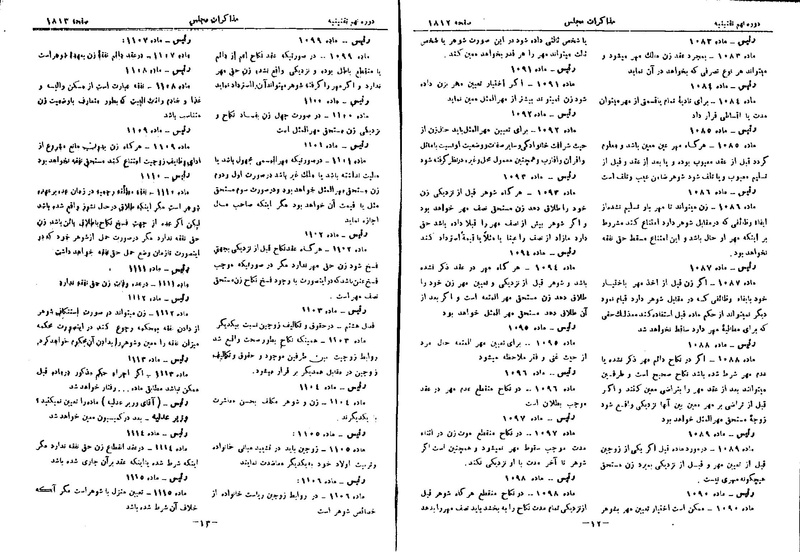 دوره نهم تقنینیه
مذاکرات مجلس
صفحه ۱۸۱۲
رئیس - ماده ۱۰۸۳
ماده ۱۰۸۳ - بمجرد عقد زن مالک مهر میشود و
میتواند هر نوع تصرفی که بخواهد در آن نماید
رئیس - ماده ۱۰۸۴
ماده ۱۰۸۴ - برای تادیهٔ تمام یا قسمتی از مهر میتوان
مدت یا اقساطی قرار داد
رئیس - ماده ۱۰۸۵
ماده ۱۰۸۵ - هرگاه مهر عین معین باشد و معلوم
گردد قبل از عقد معیوب بوده و یا بعد از عقد و قبل از
تسلیم معیوب و یا تلف شود شوهر ضامن عیب و تلف است
رئیس - ماده ۱۰۸۶
ماده ۱۰۸۶ - زن میتواند تا مهر باو تسلیم نشده از
ایفاء وظائفی که در مقابل شوهر دارد امتناع کند مشروط
بر اینکه مهر او حال باشد و این امتناع مسقط حق نفقه
نخواهد بود.
رئیس - ماده ۱۰۸۷
ماده ۱۰۸۷ - اگر زن قبل از اخذ مهر باختیار
خود بایفاء وظائفی که در مقابل شوهر دارد قیام نمود
دیگر نمیتواند از حکم ماده قبل استفاده کند معذلک حقی
که برای مطالبهٔ مهر دارد ساقط نخواهد شد
رئیس - ماده ۱۰۸۸
ماده ۱۰۸۸ - اگر در نکاح دائم مهر ذکر نشده یا
عدم مهر شرط شده باشد نکاح صحیح است و طرفین
میتوانند بعد از عقد مهر را بتراضی معین کنند و اگر
قبل از تراضی بر مهر معین بین آنها نزدیکی واقع شود
زوجه مستحق مهرالمثل خواهد بود
رئیس - ماده ۱۰۸۹
ماده ۱۰۸۹ - در مورد ماده قبل اگر یکی از زوجین
قبل از تعیین مهر و قبل از نزدیکی بمیرد زن مستحق
هیچگونه مهری نیست
رئیس - ماده ۱۰۹۰
ماده ۱۰۹۰ - ممکن است اختیار تعیین مهر بشوهر
یا شخص ثالثی داده شود در این صورت شوهر یا شخص
ثالث میتواند مهر را هر قدر بخواهد معین کند
رئیس - ماده ۱۰۹۱
ماده ۱۰۹۱ - اگر اختیار تعیین مهر بزن داده
شود زن نمیتواند بیشتر از مهرالمثل معین نماید
رئیس - ماده ۱۰۹۲
ماده ۱۰۹۲ - برای تعیین مهر المثل باید حال زن از
حیث شرافت خانوادگی و سایر صفات و وضعیت او نسبت باماثل
و اقران و اقارب و همچنین معمول محل و غیره در نظر گرفته شود
رئیس - ماده ۱۰۹۳
ماده ۱۰۹۳ - هرگاه شوهر قبل از نزدیکی زن
خود را طلاق دهد زن مستحق نصف مهر خواهد بود
و اگر شوهر بیش از نصف مهر را قبلا داده باشد حق
دارد مازاد از نصف را عینا یا مثلا یا قیمة استرداد کند
رئیس - ماده ۱۰۹۴
ماده ۱۰۹۴ - هرگاه مهر در عقد ذکر نشده
باشد و شوهر قبل از نزدیکی و تعیین مهر زن خود را
طلاق دهد زن مستحق مهر المتعه است و اگر بعد از
آن طلاق دهد مستحق مهر المثل خواهد بود
رئیس - ماده ۱۰۹۵
ماده ۱۰۹۵ - برای تعیین مهر المتعه حال مرد
از حیث غنی و فقر ملاحظه میشود
رئیس - ماده ۱۰۹۶
ماده ۱۰۹۶ - در نکاح منقطع عدم مهر در عقد
موجب بطلان است
رئیس - ماده ۱۰۹۷
ماده ۱۰۹۷ - در نکاح منقطع موت زن در اثناء
مدت موجب سقوط مهر نمیشود و همچنین است اگر
شوهر تا آخر مدت با او نزدیکی نکند.
رئیس - ماده ۱۰۹۸
ماده ۱۰۹۸ - در نکاح منقطع هرگاه شوهر قبل
از نزدیکی تمام مدت نکاح را به بخشد باید نصف مهر را بدهد
-۱۲-
دوره نهم تقنینیه
مذاکرات مجلس
صفحه ۱۸۱۳
رئیس - ماده ۱۰۹۹
ماده ۱۰۹۹ - در صورتیکه عقد نکاح اعم از دائم
یا منقطع باطل بوده و نزدیکی واقع نشده زن حق مهر
ندارد و اگر مهر را گرفته شوهر میتواند آنرا استرداد نماید
رئیس - ماده ۱۱۰۰
ماده ۱۱۰۰ - در صورت جهل زن بفساد نکاح و
نزدیکی زن مستحق مهرالمثل است
رئیس - ماده ۱۱۰۱
ماده ۱۱۰۱ - در صورتیکه مهرالمسمی مجهول باشد یا
مالیت نداشته باشد یا ملک غیر باشد در صورت اول و دوم
زن مستحق مهر المثل خواهد بود و در صورت سوم مستحق
مثل یا قیمت آن خواهد بود مگر اینکه صاحب مال
اجازه نماید
رئیس - ماده ۱۱۰۲
ماده ۱۱۰۲ - هرگاه عقد نکاح قبل از نزدیکی بجهتی
فسخ شود زن حق مهر ندارد مگر در صورتیکه موجب
فسخ عنن باشد که در اینصورت با وجود فسخ نکاح زن مستحق
نصف مهر است.
رئیس - ماده ۱۱۰۳
فصل هشتم - در حقوق و تکالیف زوجین نسبت بیکدیگر
ماده ۱۱۰۳ - همینکه نکاح بطور صحت واقع شد
روابط زوجیت بین طرفین موجود و حقوق و تکالیف
زوجین در مقابل همدیگر بر قرار میشود.
رئیس - ماده ۱۱۰۴
ماده ۱۱۰۴ - زن و شوهر مکلف بحسن معاشرت
با یکدیگرند.
رئیس - ماده ۱۱۰۵:
ماده ۱۱۰۵ - زوجین باید در تشیید مبانی خانواده
و تربیت اولاد خود بیکدیگر معاضدت نمایند
رئیس - ماده ۱۱۰۶:
ماده ۱۱۰۶ - در روابط زوجین ریاست خانواده از
خصائص شوهر است
رئیس - ماده ۱۱۰۷:
ماده ۱۱۰۷ - در عقد دائم نفقه زن بعهدهٔ شوهر است
رئیس - ماده ۱۱۰۸
ماده ۱۱۰۸ - نفقه عبارت است از مسکن و البسه و
غذا و خادم و اثاث البیت که بطور متعارف با وضعیت زن
متناسب باشد
رئیس - ماده ۱۱۰۹
ماده ۱۱۰۹ - هرگاه زن بدون مانع مشروع از
ادای وظایف زوجیت امتناع کند مستحق نفقه نخواهد بود
رئیس - ۱۱۱۰
ماده ۱۱۱۰ - نفقه مطلقه رجعیه در زمان عده بر عهده
شوهر است مگر اینکه طلاق در حال نشوز واقع شده باشد
لیکن اگر عده از جهت فسخ نکاح یا طلاق بائن باشد زن
حق نفقه ندارد مگر در صورت حمل از شوهر خود که در
اینصورت تا زمان وضع حمل حق نفقه خواهد داشت
رئیس - ماده ۱۱۱۱
ماده ۱۱۱۱ - در عده وفات زن حق نفقه ندارد
رئیس - ماده ۱۱۱۲
ماده ۱۱۱۲ - زن میتواند در صورت استنکاف شوهر
از دادن نفقه بمحکمه رجوع کند در اینصورت محکمه
میزان نفقه را معین و شوهر را بدادن آن محکوم خواهد کرد.
رئیس - ماده ۱۱۱۳
ماده ۱۱۱۳ - اگر اجراء حکم مذکور در ماده قبل
ممکن نباشد مطابق ماده ... رفتار خواهد شد
رئیس - (آقای وزیر عدلیه) ماده را تعیین نمیکنید؟
وزیر عدلیه - بعد در کمیسیون معین خواهد شد
رئیس - ماده ۱۱۱۴
ماده ۱۱۱۴ - در عقد انقطاع زن حق نفقه ندارد مگر
اینکه شرط شده یا اینکه عقد بر آن جاری شده باشد
رئیس - ماده ۱۱۱۵
ماده ۱۱۱۵ - تعیین منزل با شوهر است مگر آنکه
خلاف آن شرط شده باشد
-۱۳-